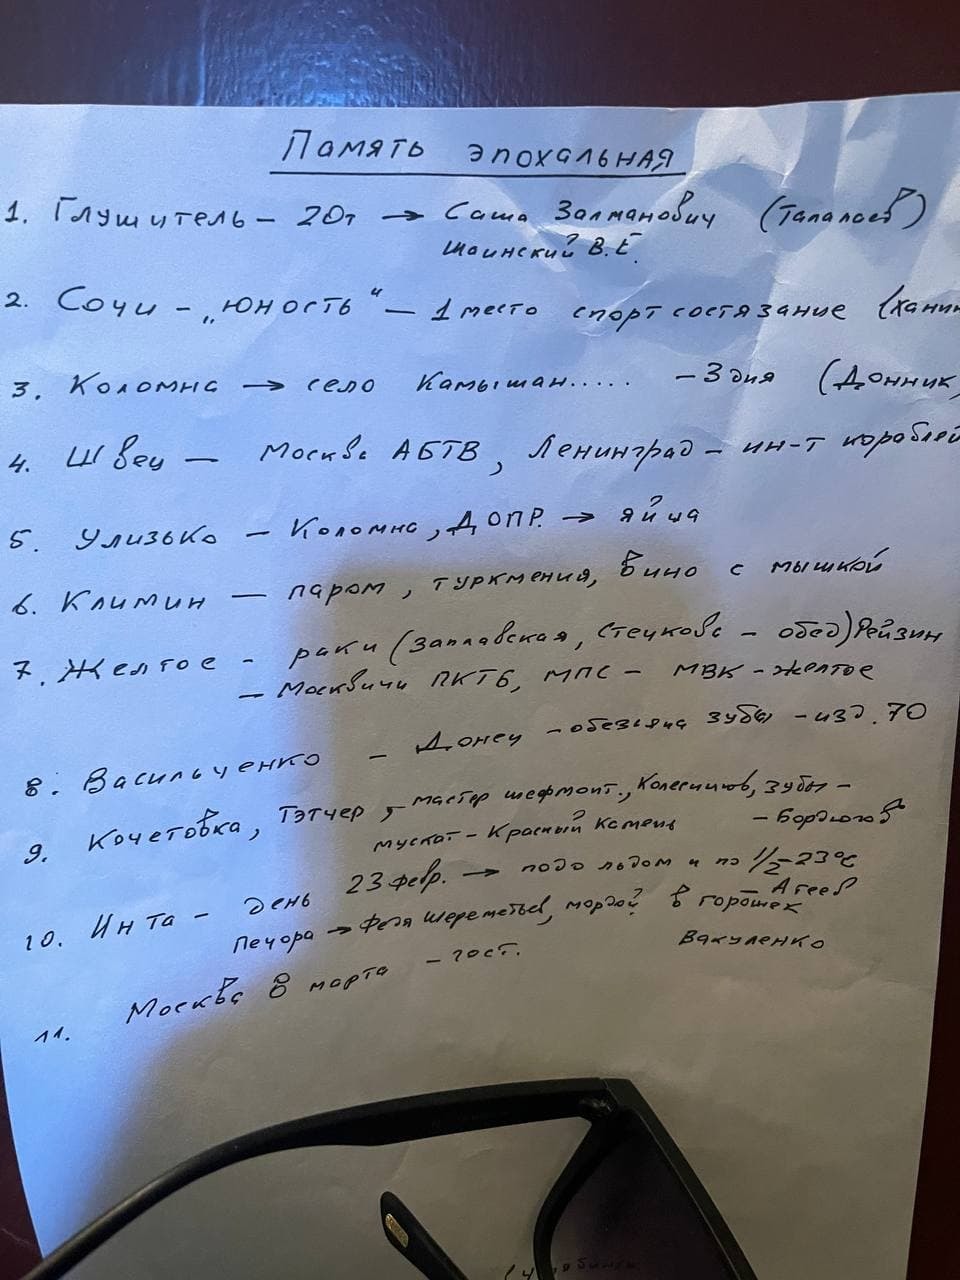 Память эпохальная
1. Глушитель – 20т → Саша Залманович (Талалаев)
Шаинский В.Е.
2. Сочи – „Юность“ – 1 место спорт состязание (Ханин
3. Коломна → село Камышан..... – 3 дня (Донник,
4. Швец – Москва АБТВ, Ленинград – ин-т кораблей
5. Улизько – Коломна, ДОПР. → яйца
6. Климин – паром, туркмения, вино с мышкой
7. Желтое - раки (Заплавская, Стечкова – обед) Рейзин
– Москвичи ПКТБ, МПС – МВК – желтое
8. Васильченко – Донец – обезьяна зубы – изд. 70
9. Кочетовка, Тэтчер, мастер шефмонт., Колесников, зубы –
мускат – Красный Камень – Бордюгов
10. Инта – день 23 февр. → подо льдом и по 1/2 – 23°C
– Агеев
Печора → Федя Шереметьев, мордой в горошек
Вакуленко
11. Москва 8 марта – гост.